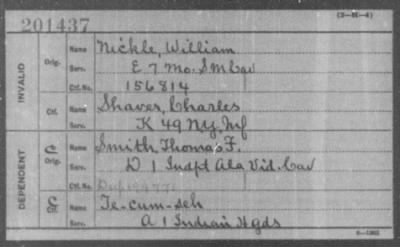 201437
(3-M-4)
INVALID
Orig.
Name Nickle, William
Serv. E 7 Mo. S M Cav
Ctf. No. 156814
Ctf.
Name Shaver, Charles
Serv. K 49 N.Y. Inf
DEPENDENT
C Orig.
Name Smith, Thomas F.
Serv. D 1 Indpt Ala Vid. Cav
Ctf. No.
C Ctf.
Name Te-cum-seh
Serv. A 1 Indian H Gds